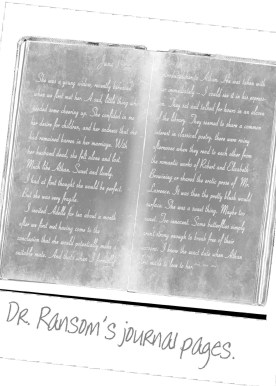 She was a young widow, recently bereaved
when we first met her. A sad, little thing
She confided in me
her desire for children, and her sadness that she
had remained barren in her marriage. With
her husband dead, she felt alone and lost.
Much like Athan. Sweet and lonely.
I had at first thought she would be perfect.
But she was very fragile.
I visited Adelle for about a month
after we first met having come to the
conclusion that she would potentially make a
suitable mate. And that's when I
to Athan. He was taken with
immediately. I could see it in his
They sat and talked for hours in an alcove
of the library. They seemed to share a common
interest in classical poetry; there were many
afternoons when they read to each other from
the romantic works of Robert and Elizabeth
Browning or shared the erotic prose of
It was then the pretty blush would
surface. She was a sweet thing. Maybe too
sweet. Too innocent. Some butterflies simply
aren't strong enough to break free of their
I knew the exact date when Athan
to love to her
Dr. Ransom's journal pages.